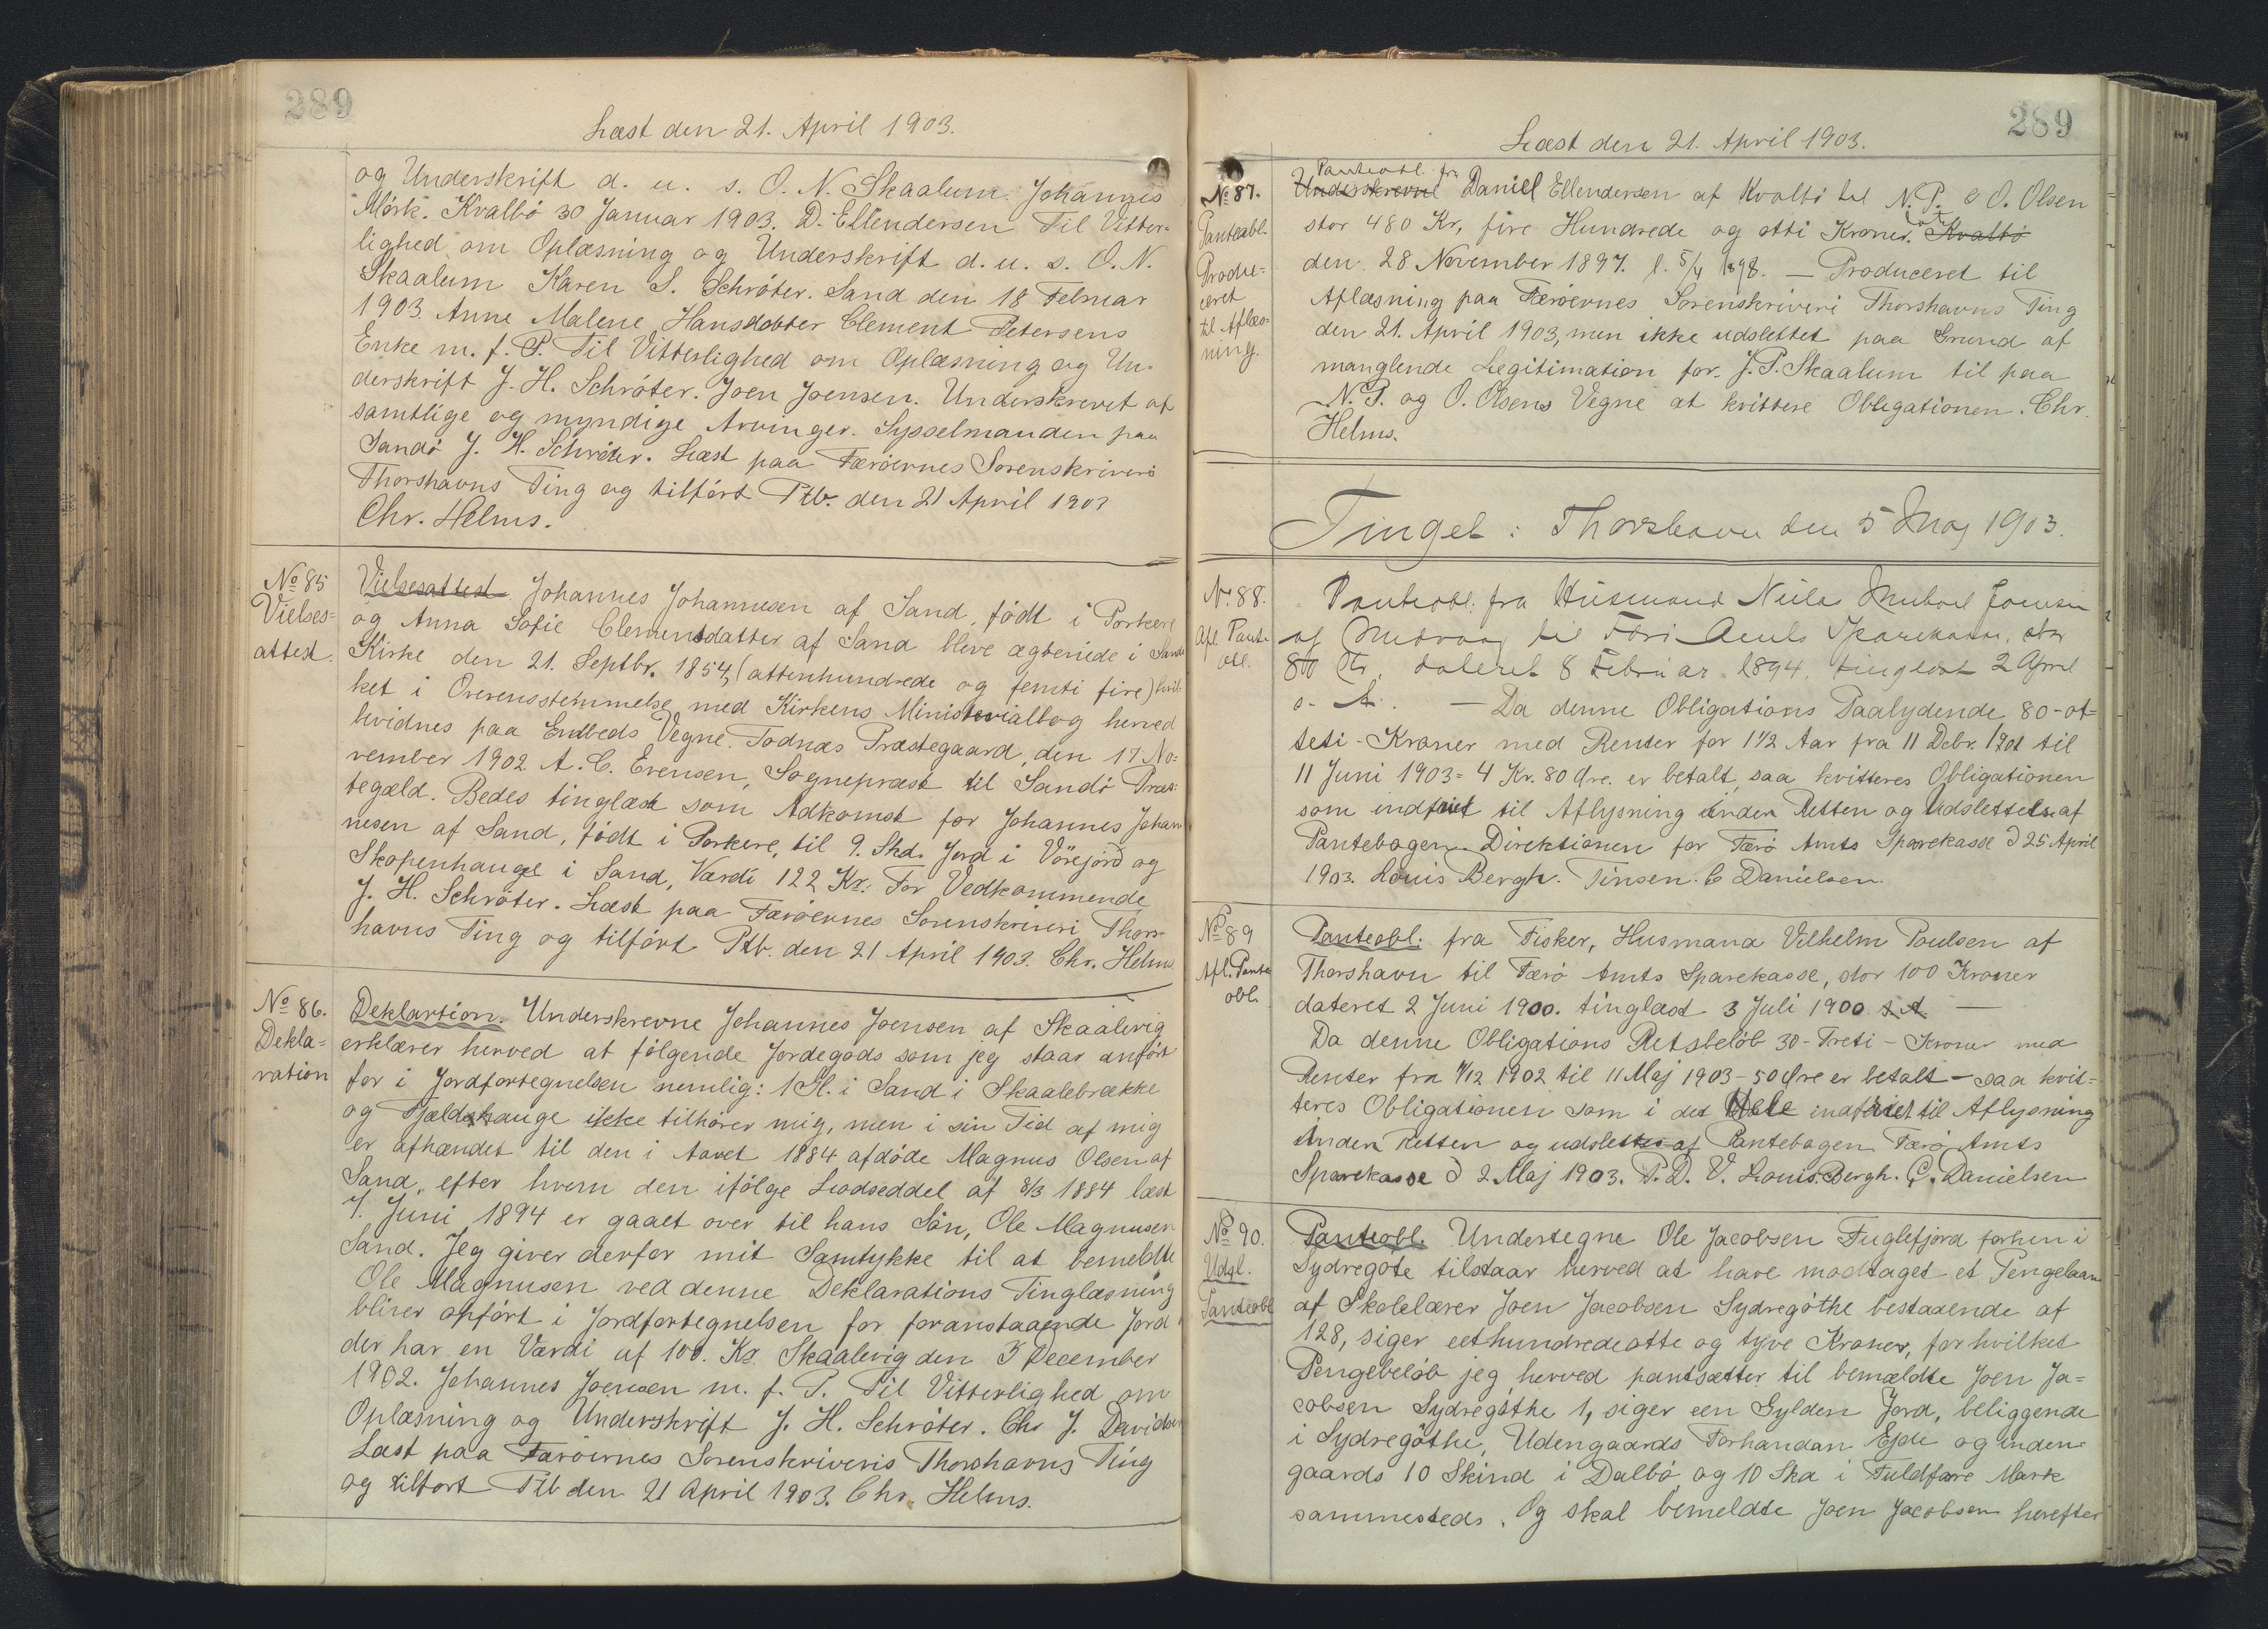 289
Læst den 21. April 1903.
og Underskrift d. u. s. O. N. Skaalum. Johannes
Mörk. Kvalbö 30 Januar 1903. D. Ellendersen Til Vitter-
lighed om Oplæsning og Underskrift d. u. s. O. N.
Skaalum Karen S. Schröter. Sand den 18 Februar
1903. Anne Malene Hansdatter Clement Petersens
Enke m. f. P. Til Vitterlighed om Oplæsning og Un-
derskrift J. H. Schröter. Joen Joensen. Underskrevet af
samtlige og myndige Arvinger. Sysselmanden paa
Sandö J. H. Schröter. Læst paa Færöernes Sorenskriveri
Thorshavns Ting og tilfört Ptb. den 21 April 1903
Chr. Helms.
No 85
Vielses=
attest.
Vielsesattest Johannes Johannesen af Sand, födt i Porkere
og Anna Sofie Clementsdatter af Sand bleve ægteviede i Sands
Kirke den 21. Septbr. 1854, (attenhundrede og femti fire) hvil-
ket i Overensstemmelse med Kirkens Ministerialbog herved
bevidnes paa Embeds Vegne. Todnæs Præstegaard, den 17 No=
vember 1902. A. C. Evensen, Sognepræst til Sandö Præs-
tegæld. Bedes tinglæst som Adkomst for Johannes Johan
nesen af Sand, födt i Porkere, til 9. Skd. Jord i Vörejörd og
Skopenhauge i Sand, Værdi 122 Kr. For Vedkommende
J. H. Schröter. Læst paa Færöernes Sorenskriveri Thors-
havns Ting og tilfört Ptb. den 21 April 1903. Chr. Helms
No 86.
Dekla=
ration
Deklartion. Underskrevne Johannes Joensen af Skaalevig
erklærer herved at fölgende Jordegods som jeg staar anfört
for i Jordfortegnelsen nemlig: 1 Gl. i Sand i Skaalebrække
og Fjældshauge ikke tilhörer mig, men i sin Tid af mig
er afhændet til den i Aaret 1884 afdöde Magnus Olsen af
Sand, efter hvem den ifölge Lodseddel af 8/3 1884 læst
7. Juni 1894 er gaaet over til hans Sön, Ole Magnusen
Sand. Jeg giver derfor mit Samtykke til at bemeldte
Ole Magnusen ved denne Deklarations Tinglæsning
bliver opfört i Jordfortegnelsen for foranstaaende Jord
der har en Værdi af 100. Kr. Skaalevig den 3 December
1902. Johannes Joensen m. f. P. Til Vitterlighed om
Oplæsning og Underskrift J. H. Schröter. Chr J. Davidsen
Læst paa Færöernes Sorenskriveris Thorshavns Ting
og tilfört Ptb den 21 April 1903. Chr. Helms.
289
Læst den 21. April 1903.
No 87.
Panteobl.
Produ=
ceret
til Aflæs=
ning.
Panteobl. fra
Underskrevne Daniel Ellendersen af Kvalbö til N. P. & O. Olsen
stor 480 Kr, fire Hundrede og otti Kroner. dat. Kvalbö
den 28 November 1897. l. 5/4 1898. — Produceret til
Aflæsning paa Færöernes Sorenskriveri Thorshavns Ting
den 21. April 1903, men ikke udslettet paa Grund af
manglende Legitimation for J. P. Skaalum til paa
N. P. og O. Olsens Vegne at kvittere Obligationen. Chr.
Helms.
Tinget: Thorshavn den 5 Maj 1903.
No 88.
Afl. Pante
obl.
Panteobl. fra Husmand Niels Michael Joensen
af Midvaag til Færö Amts Sparekasse, stor
800 Kr, dateret 8 Februar 1894. tinglæst 2 April
s. A. — Da denne Obligations Paalydende 80-ot=
teti-Kroner med Renter for 1 1/2 Aar fra 11 Debr. 1901 til
11 Juni 1903 = 4 Kr. 80 Öre. er betalt, saa kvitteres Obligationen
som indfriet til Aflysning inden Retten og Udslettelse af
Pantebogen. Direktionen for Færö Amts Sparekasse d 25 April
1903. Louis Bergh. Tinsen. C Danielsen.
No 89
Afl. Pante
obl.
Panteobl. fra Fisker, Husmand Vilhelm Poulsen af
Thorshavn til Færö Amts Sparekasse, stor 100 Kroner
dateret 2 Juni 1900. tinglæst 3 Juli 1900 s. A. —
Da denne Obligations Restbelöb 30-Treti-Kroner med
Renter fra 11/12 1902 til 11 Maj 1903 - 50 Öre er betalt - saa kvit=
teres Obligationen som i det Hele indfriet til Aflysning
inden Retten og udslettes af Pantebogen Færö Amts
Sparekasse d 2 Maj 1903. P. D. V. Louis Bergh. C. Danielsen
No 90.
Udsl.
Panteobl
Panteobl. Undertegne Ole Jacobsen Fuglefjord forhen i
Sydregöte tilstaar herved at have modtaget et Pengelaan
af Skolelærer Joen Jacobsen Sydregöthe bestaaende af
128, siger eethundredeotte og tyve Kroner, for hvilket
Pengebelöb jeg herved pantsætter til bemældte Joen Ja=
cobsen Sydregöthe 1, siger een Gylden Jord, beliggende
i Sydregöthe, Udengaards Forhandan Ejde og inden-
gaards 10 Skind i Dalbö og 10 Ska i Fuldfære Mark
sammesteds. Og skal bemeldte Joen Jacobsen herefter